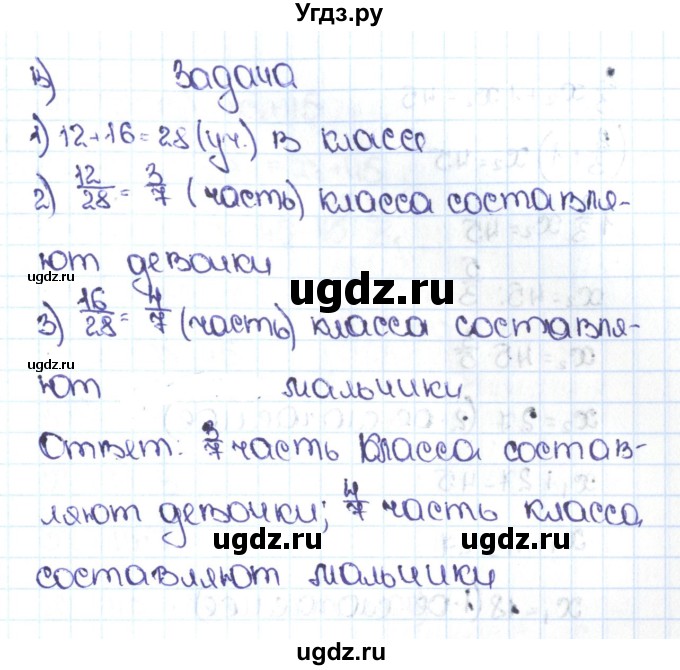 Угдз.ру
в) Задача
1) 12+16=28 (уч.) в классе
2) 12/28 = 3/7 (часть) класса составля-
ют девочки
ugdz.ru
ugdz.ru
3) 16/28 = 4/7 (часть) класса составля-
ugdz.ru
ют мальчики
Ответ: 3/7 часть класса состав-
ляют девочки; 4/7 часть класса
ugdz.ru
ugdz.ru
составляют мальчики
ugdz.ru